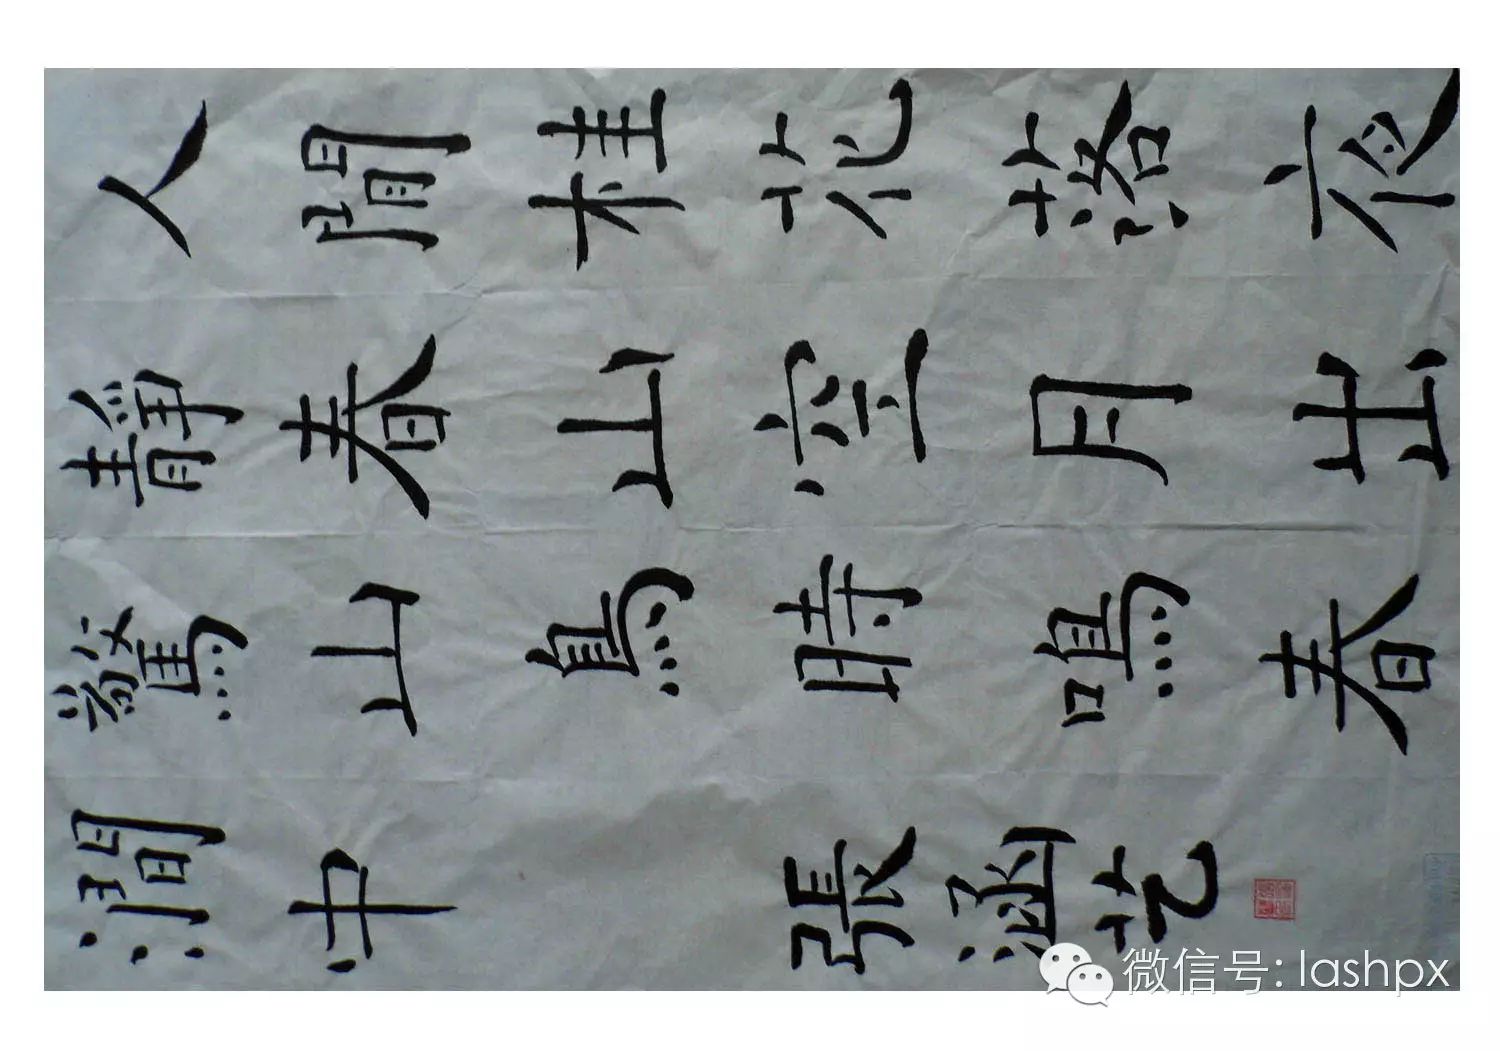 人閒桂花落夜
靜春山空月出
驚山鳥時鳴春
澗中
張涵艺
微信号: lashpx